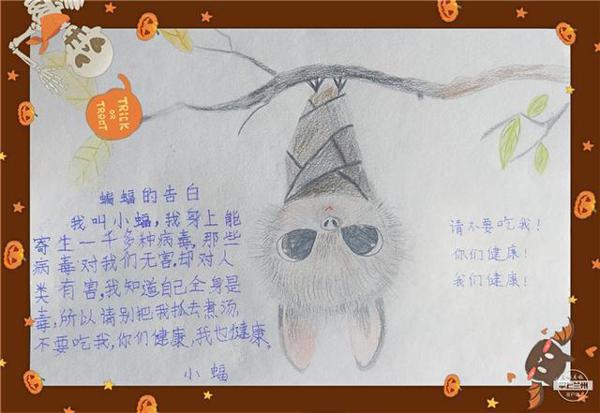 TRICK
OR
TREAT
蝙蝠的告白
我叫小蝠，我身上能
寄生一千多种病毒，那些
病毒对我们无害，却对人
类有害，我知道自己全身是
毒，所以请别把我抓去煮汤，
不要吃我，你们健康，我也健康。
小蝠
请不要吃我！
你们健康！
我们健康！
掌上兰州
客户端